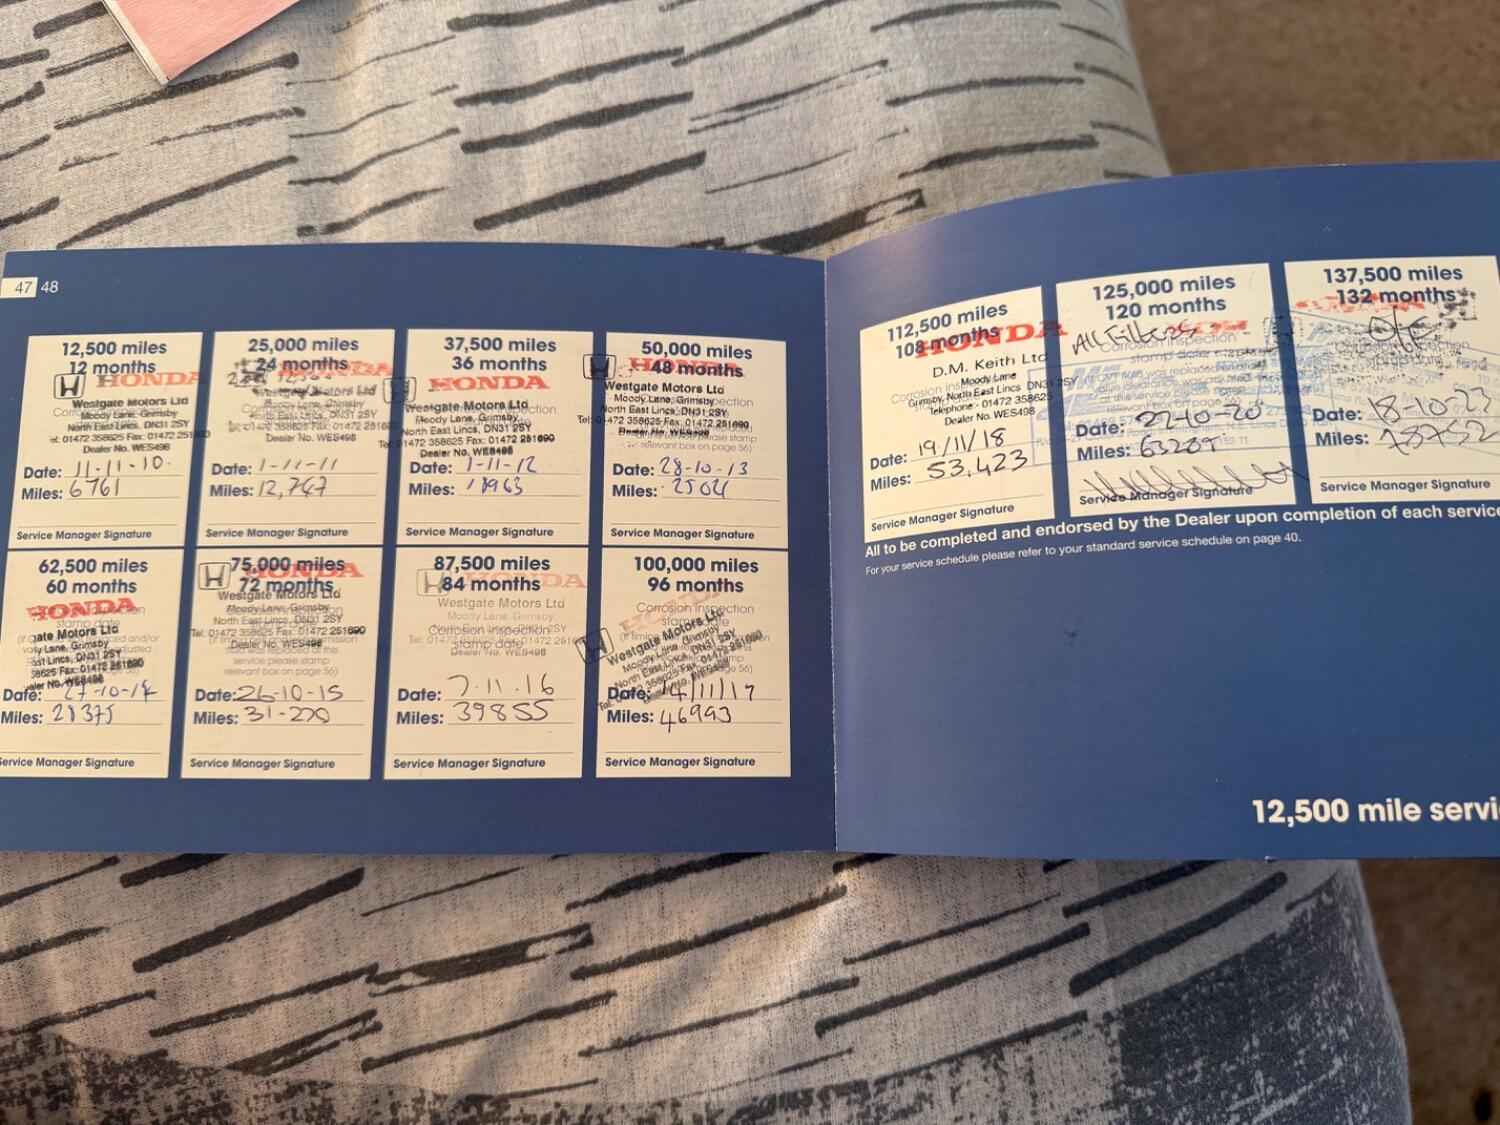 47 48
12,500 miles
12 months
HONDA
Westgate Motors Ltd
Moody Lane, Grimsby
North East Lincs, DN31 2SY
Tel: 01472 358625 Fax: 01472 251690
Dealer No. WES498
Date: 11-11-10.
Miles: 6761
Service Manager Signature
25,000 miles
24 months
HONDA
Motors Ltd
Dealer No. WES498
Date: 1-11-11
Miles: 12,747
Service Manager Signature
37,500 miles
36 months
HONDA
Westgate Motors Ltd
Moody Lane, Grimsby
North East Lincs, DN31 2SY
Tel: 01472 358625 Fax: 01472 251690
Dealer No. WES498
Date: 1-11-12
Miles: 18963
Service Manager Signature
50,000 miles
48 months
HONDA
Westgate Motors Ltd
Moody Lane, Grimsby
North East Lincs, DN31 2SY
Tel: 01472 358625 Fax: 01472 251690
Dealer No. WES498
Date: 28-10-13
Miles:
Service Manager Signature
62,500 miles
60 months
HONDA
gate Motors Ltd
Lane, Grimsby
East Lincs, DN31 2SY
58625 Fax: 01472 251690
Dealer No. WES498
Date: 27-10-14
Miles: 28375
Service Manager Signature
75,000 miles
72 months
HONDA
Westgate Motors Ltd
Moody Lane, Grimsby
North East Lincs, DN31 2SY
Tel: 01472 358625 Fax: 01472 251690
Dealer No. WES498
service please stamp
relevant box on page 56)
Date: 26-10-15
Miles: 31-270
Service Manager Signature
87,500 miles
84 months
HONDA
Westgate Motors Ltd
Moody Lane, Grimsby
North East Lincs, DN31 2SY
Corrosion inspection
Tel: 01472 358625 Fax: 01472 251690
stamp date
Dealer No. WES498
Date: 7.11.16
Miles: 39855
Service Manager Signature
100,000 miles
96 months
Corrosion inspection
HONDA
Westgate Motors Ltd
Moody Lane, Grimsby
North East Lincs, DN31 2SY
Tel: 01472 358625 Fax: 01472 251690
Date: 14/11/17
Miles: 46993
Service Manager Signature
112,500 miles
108 months
HONDA
D.M. Keith Ltd
Moody Lane
Grimsby, North East Lincs DN31 2SY
Telephone - 01472 358625
Dealer No. WES498
Date: 19/11/18
Miles: 53,423
Service Manager Signature
125,000 miles
120 months
All Filters
Corrosion inspection
stamp date
Date: 22-10-20
Miles: 63289
Service Manager Signature
137,500 miles
132 months
Date: 18-10-23
Miles: 78752
Service Manager Signature
All to be completed and endorsed by the Dealer upon completion of each service
For your service schedule please refer to your standard service schedule on page 40.
12,500 mile servi